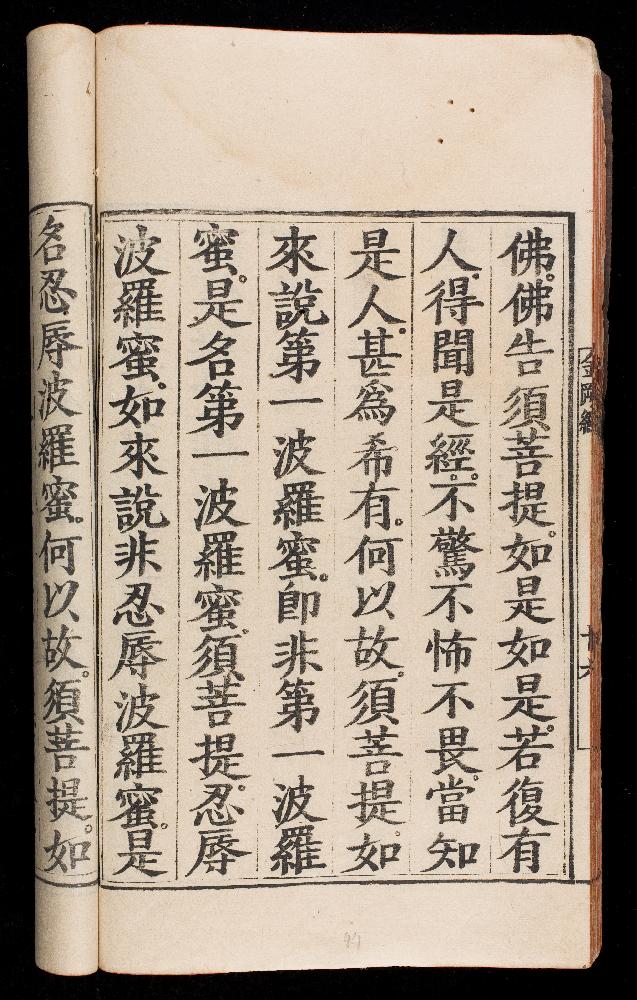 佛。佛告須菩提。如是如是。若復有
人。得聞是經。不驚不怖不畏。當知
是人。甚爲希有。何以故。須菩提。如
來說第一波羅蜜。即非第一波羅
蜜。是名第一波羅蜜。須菩提。忍辱
波羅蜜。如來說非忍辱波羅蜜。是
名忍辱波羅蜜。何以故。須菩提。如
金剛經